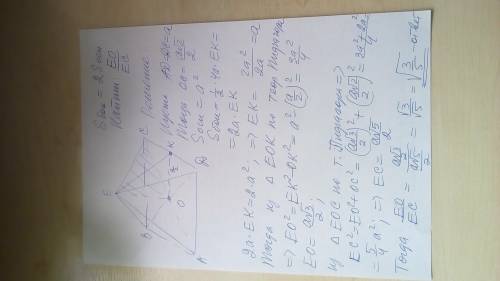 Sбок = 2Sосн
Найти EO/EC
Решение
Пусть AB=BC=a
Тогда OC = a√2/2
Sосн = a²
Sбок = 1/2 · 4a · EK =
= 2a · EK
2a · EK = 2a², => EK = 2a²/2a = a
Тогда из △ EOK по теор Пифагора
=> EO² = EK² - OK² = a² - (a/2)² = 3a²/4
EO = a√3/2,
из △ EOC по т. Пифагора =>
EC² = EO² + OC² = (a√3/2)² + (a√2/2)² = 3a²+2a²/4
= 5/4 a², => EC = a√5/2
Тогда EO/EC = a√3/2 / a√5/2 = √3/√5 = √3/5 - ответ
E
B
C
K
a/2
O
A
D